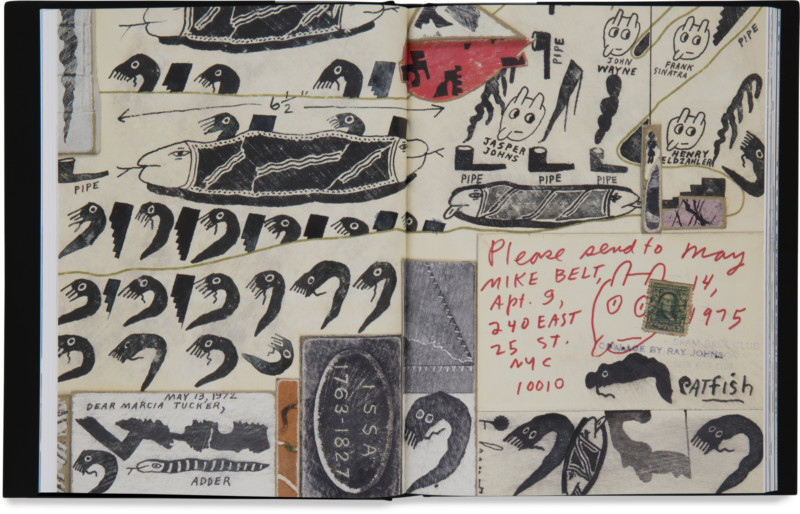 6½"
PIPE
PIPE
JOHN
WAYNE
FRANK
SINATRA
PIPE
JASPER
JOHNS
HENRY
GELDZAHLER
PIPE
PIPE
PIPE
Please send to
MIKE BELT,
Apt. 9,
240 EAST
25 ST.
NYC
10010
May
14,
1975
COLLAGE BY RAY JOHNSON
PATfish
MAY 13, 1972
DEAR MARCIA TUCKER,
ADDER
ISSA
1763-1827